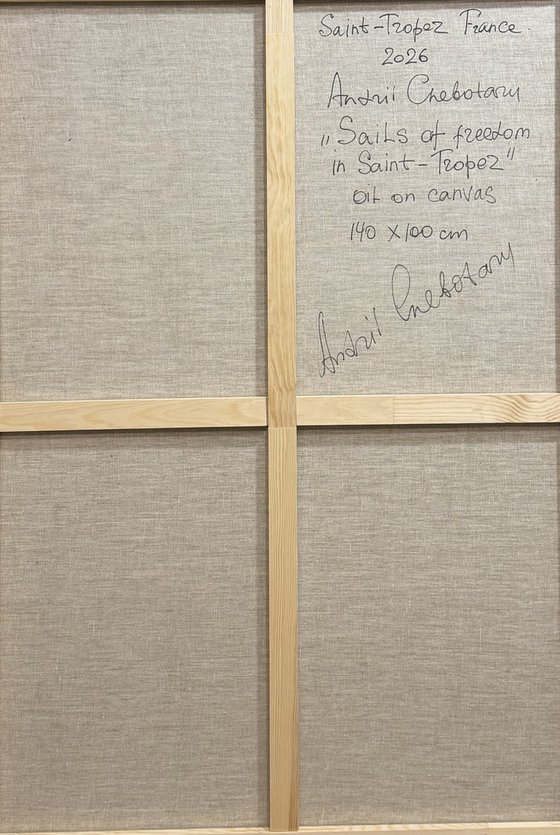 Saint-Tropez France.
2026
Andrii Chebotaru
„Sails of freedom
in Saint-Tropez"
oil on canvas
140 x 100 cm
Andrii Chebotaru